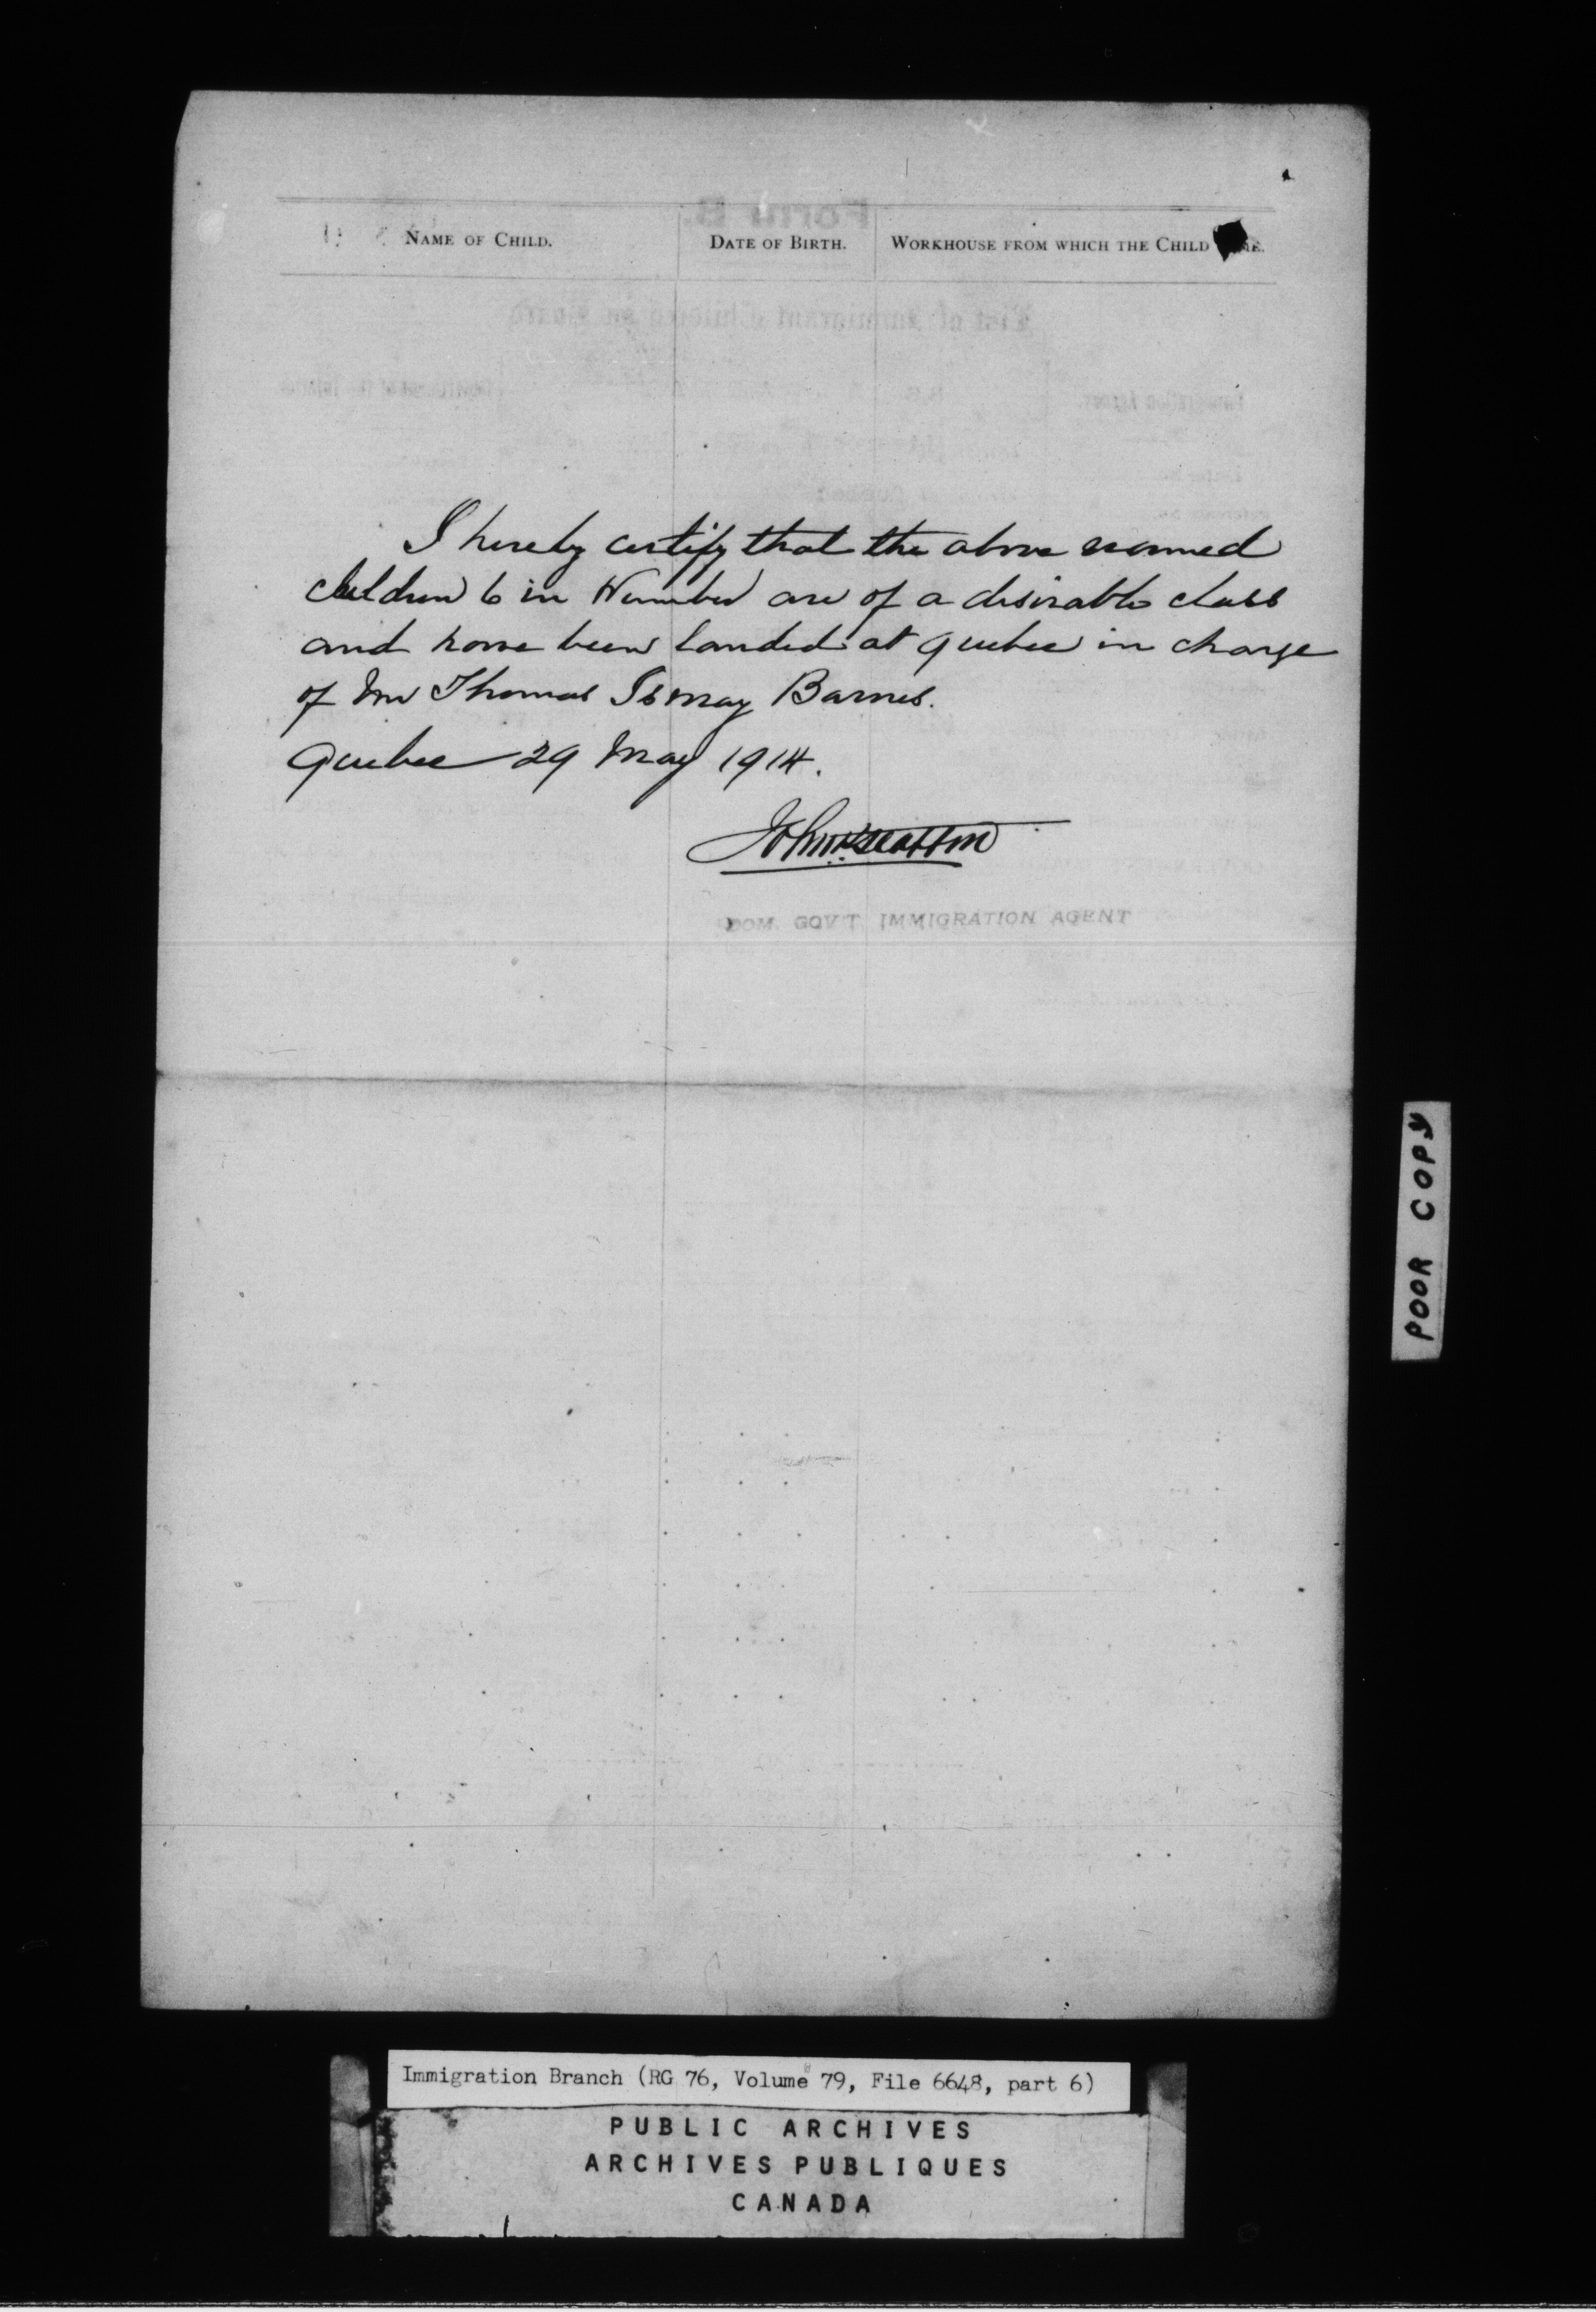 Form B.
NAME OF CHILD. DATE OF BIRTH. WORKHOUSE FROM WHICH THE CHILD
List of Immigrant Children on Board
I hereby certify that the above named
children 6 in Number are of a desirable class
and have been landed at Quebec in charge
of Mr Thomas Ismay Barnes.
Quebec 29 May 1914.
DOM. GOV'T IMMIGRATION AGENT
POOR COPY
Immigration Branch (RG 76, Volume 79, File 6648, part 6)
PUBLIC ARCHIVES
ARCHIVES PUBLIQUES
CANADA